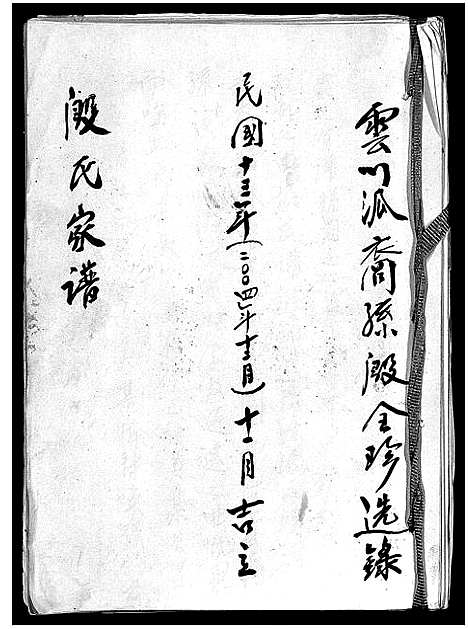 雲川派裔孫殿全珍选錄
民國十三年(二〇〇四年十二月)十一月吉立
殿氏家谱